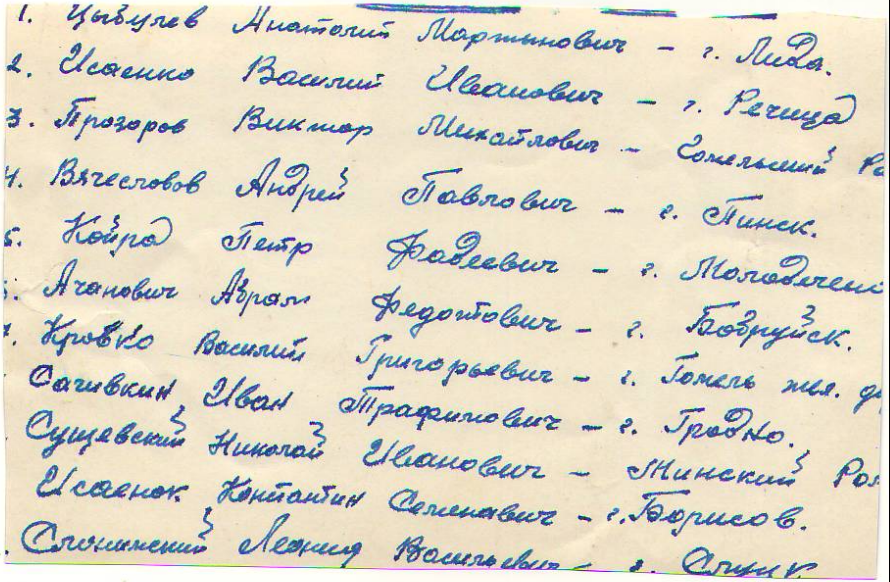 1. Цыбулев Анатолий Мартынович – г. Лида.
2. Исаенко Василий Иванович – г. Речица
3. Прозоров Виктор Михайлович – Гомельский
4. Вячесловов Андрей Павлович – г. Пинск.
5. Койра Петр Фадеевич – г. Молодечено
Ачанович Абрам Федотович – г. Бобруйск.
Кровко Василий Григорьевич – г. Гомель жел.
Сачивкин Иван Трафимович – г. Гродно.
Сущевский Николай Иванович – Минский
Исаенок Контантин Семенавич – г. Борисов.
Слонимский Леонид Васильевич – г. Слуцк